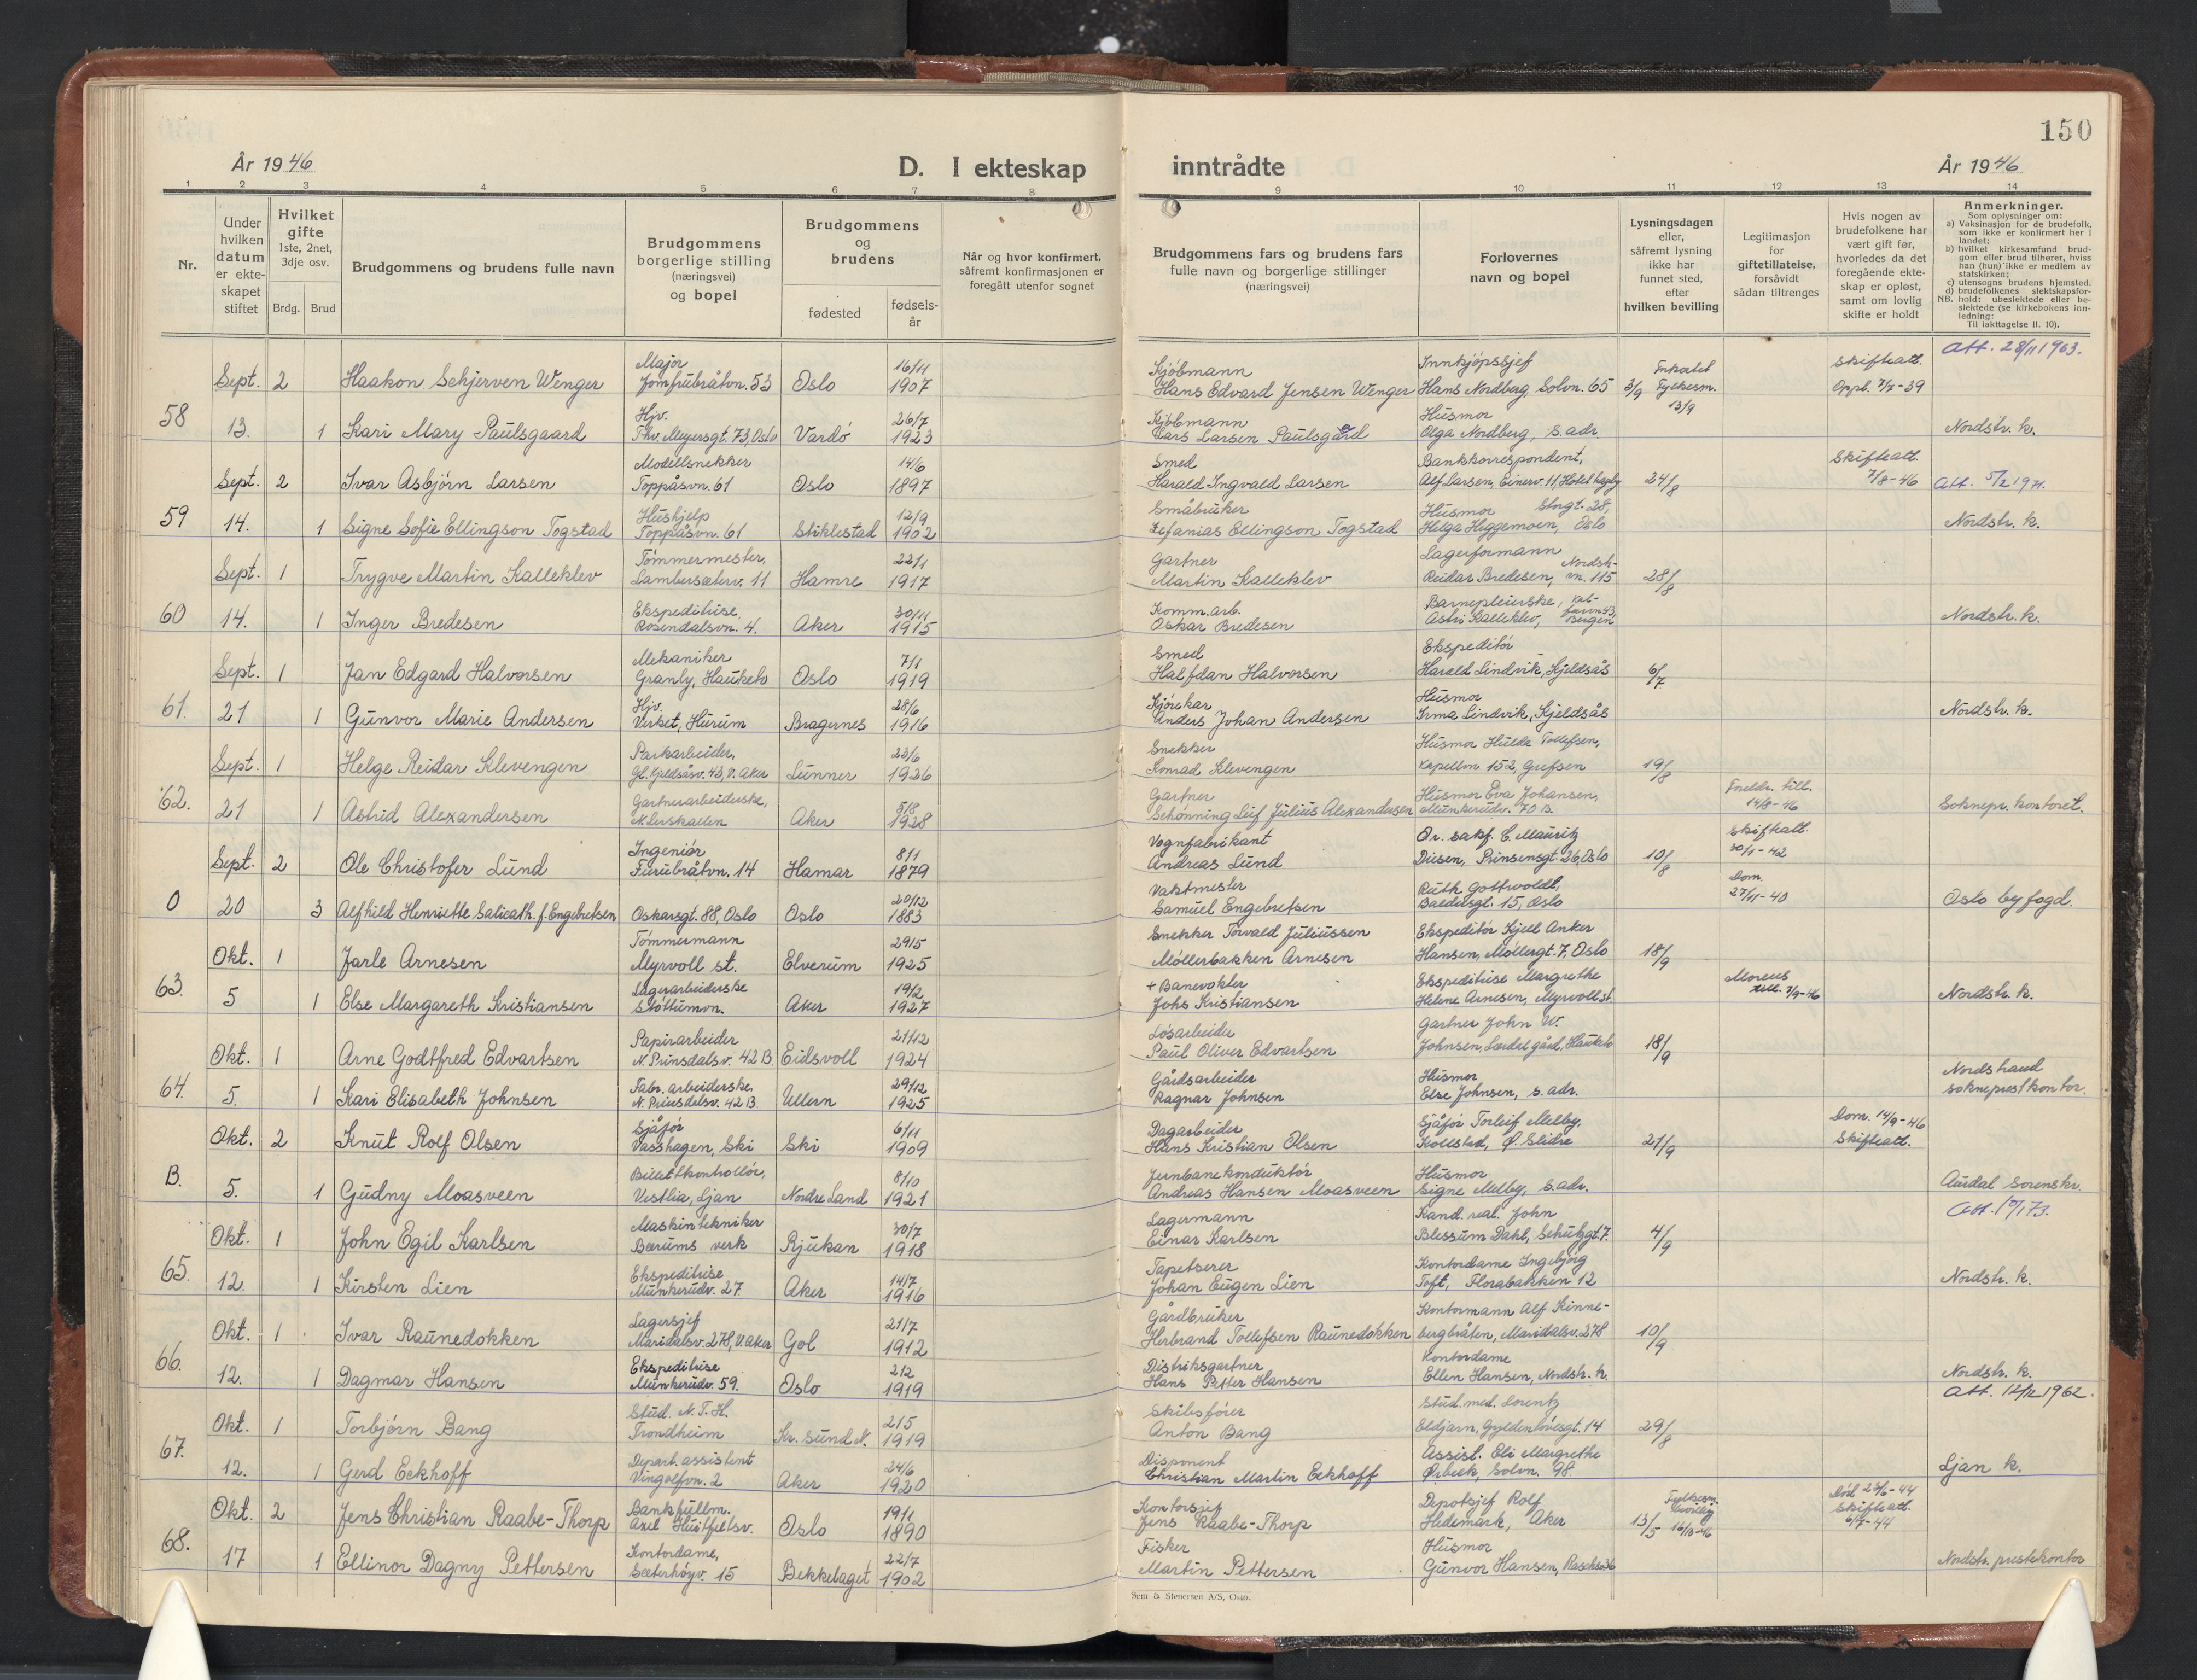 150
År 1946
D. I ekteskap inntrådte
År 1946
1 2 3 4 5 6 7 8 9 10 11 12 13 14
Nr.
Under hvilken datum er ekte-skapet stiftet
Hvilket gifte 1ste, 2net, 3dje osv.
Brdg. Brud
Brudgommens og brudens fulle navn
Brudgommens borgerlige stilling (næringsvei) og bopel
Brudgommens og brudens
fødested
fødsels-år
Når og hvor konfirmert, såfremt konfirmasjonen er foregått utenfor sognet
Brudgommens fars og brudens fars fulle navn og borgerlige stillinger (næringsvei)
Forlovernes navn og bopel
Lysningsdagen eller, såfremt lysning ikke har funnet sted, efter hvilken bevilling
Legitimasjon for giftetillatelse, forsåvidt sådan tiltrenges
Hvis nogen av brudefolkene har vært gift før, hvorledes da det foregående ekte-skap er opløst, samt om lovlig skifte er holdt
Anmerkninger.
Som oplysninger om:
a) Vaksinasjon for de brudefolk, som ikke er konfirmert her i landet;
b) hvilket kirkesamfund brud-gom eller brud tilhører, hviss han (hun) ikke er medlem av statskirken;
c) utensogns brudens hjemsted.
d) brudefolkenes slektskapsfor-hold: ubeslektede eller be-slektede (se kirkebokens inn-ledning:
NB.
Til iakttagelse II. 10).
58
Sept. 2 Haakon Schjerven Wenger Major Jomfrubråtvn. 53 Oslo 16/11 1907 Kjøbmann Hans Edvard Jensen Wenger Innkjøpssjef Hans Nordberg, Solvn. 65 3/9 Fylkesm. 13/9 Skifteatt. Oppl. 7/7-39 Att. 28/11 1963.
13. 1 Kari Mary Paulsgaard Hjv. Thv. Meyersgt. 73, Oslo Vardø 26/7 1923 Kjøbmann Lars Larsen Paulsgård Husmor Olga Nordberg, s. adr. Nordstr. k.
59
Sept. 2 Ivar Asbjørn Larsen Modellsnekker Toppåsvn. 61 Oslo 14/6 1897 Smed Harald Ingvald Larsen Bankkorrespondent, Alf Larsen, Einerv. 11 24/8 Skifteatt. 7/8-46 Att. 5/2 1971.
14. 1 Signe Sofie Ellingson Togstad Hushjelp Toppåsvn. 61 Stiklestad 12/9 1902 Småbruker Zefanias Ellingson Togstad Husmor Storgt. 28, Helga Heggemoen, Oslo Nordstr. k.
60
Sept. 1 Trygve Martin Kalleklev Tømmermester, Lambersæterv. 11 Hamre 22/1 1917 Gartner Martin Kalleklev Lagerformann Reidar Bredesen, Nordstr. vn. 115 28/8
14. 1 Inger Bredesen Ekspeditrise, Rosendalsvn. 4. Aker 30/11 1915 Komm. arb. Oskar Bredesen Barnepleierske, Astri Kalleklev, Bergen Nordstr. k.
61.
Sept. 1 Jan Edgard Halvorsen Mekaniker Granly, Hauketo Oslo 7/1 1919 Smed Halfdan Halvorsen Ekspeditør Harald Lindvik, Kjeldsås 6/7
21 1 Gunvor Marie Andersen Hjv. Verket, Hurum Bragernes 28/6 1916 Kjørekar Anders Johan Andersen Husmor Irma Lindvik, Kjeldsås Nordstr. k.
62.
Sept. 1 Helge Reidar Klevengen Parkarbeider, Gl. Kjeldsåsv. 43, V. Aker Lunner 23/6 1926 Snekker Konrad Klevengen Husmor Hulda Tollefsen, Kapellvn. 152, Grefsen 19/8
21 1 Astrid Alexandersen Gartnerarbeiderske, Aker 5/8 1928 Gartner Schønning Leif Julius Alexandersen Husmor Eva Johansen, Munkerudv. 70 B. Foreldr. till. 14/8-46 Soknepr. kontoret.
0
Sept. 2 Ole Christofer Lund Ingeniør Furubråtvn. 14 Hamar 8/1 1879 Vognfabrikant Andreas Lund Or. sakf. C. Mauritz Diesen, Prinsensgt. 26, Oslo 10/8 Skifteatt. 30/1-42
20 3 Alfhild Henriette Salicath. f. Engebretsen Oskarsgt. 88, Oslo Oslo 20/12 1883 Vaktmester Samuel Engebretsen Ruth Gottwoldt, Baldersgt. 15, Oslo Dom. 27/11-40 Oslo byfogd.
63.
Okt. 1 Jarle Arnesen Tømmermann Myrvoll st. Elverum 29/5 1925 Snekker Torvald Juliussen Møllerbakken Arnesen Ekspeditør Kjell Anker Hansen, Møllergt. 7, Oslo 18/9
5 1 Else Margareth Kristiansen Lagerarbeiderske Støttumvn. Aker 19/2 1927 + Banevokter Johs Kristiansen Ekspeditrise Margrethe Helene Arnesen, Myrvoll st. Morens till. 7/9-46 Nordstr. k.
64.
Okt. 1 Arne Godtfred Edvartsen Papirarbeider N. Prinsdalsv. 42 B. Eidsvoll 21/12 1924 Løsarbeider Paul Oliver Edvartsen Gartner John W. Johnsen, gård, Hauketo 18/9
5. 1 Kari Elisabeth Johnsen Fabr. arbeiderske, N. Prinsdalsv. 42 B. Ullern 29/12 1925 Gårdsarbeider Ragnar Johnsen Husmor Else Johnsen, s. adr. Nordstrand sokneprestkontor.
B.
Okt. 2 Knut Rolf Olsen Sjåfør Vasshagen, Ski Ski 6/11 1909 Dagarbeider Hans Kristian Olsen Sjåfør Torleif Melby, Kollstad, Ø. Slidre 21/9 Dom. 14/9-46 Skifteatt.
5. 1 Gudny Moasveen Billettkontrollør, Vestlia, Ljan Nordre Land 8/10 1921 Jernbanekonduktør Andreas Hansen Moasveen Husmor Signe Melby, s. adr. Aurdal Sorenskr.
65.
Okt. 1 John Egil Karlsen Maskintekniker Bærums verk Rjukan 30/7 1918 Lagermann Einar Karlsen Kand. real. John Blessum Dahl, Schultzgt. 7. 4/9
12. 1 Kirsten Lien Ekspeditrise Munkerudv. 27 Aker 14/7 1916 Tapetserer Johan Eugen Lien Kontordame Ingebjørg Toft, Florabakken 12 Nordstr. k.
66.
Okt. 1 Ivar Raunedokken Lagersjef Maridalsv. 278, V. Aker Gol 21/7 1912 Gårdbruker Herbrand Tollefsen Raunedokken Kontormann Alf Kinne-bergbråten, Maridalsv. 278 10/9
12. 1 Dagmar Hansen Ekspeditrise Munkerudv. 59. Oslo 2/2 1919 Distriksgartner Hans Petter Hansen Kontordame Ellen Hansen, Nordstr. h. Nordstr. k.
67.
Okt. 1 Torbjørn Bang Stud. N.T.H. Trondheim Kr. sund N. 2/5 1919 Skibsfører Anton Bang Stud. med. Lorentz Eldjarn, Gyldenløvesgt. 14 29/8 Att. 12/2 1962.
12. 1 Gerd Eckhoff Depart. assistent Vingolfvn. 2 Aker 24/6 1920 Disponent Christian Martin Eckhoff Assist. Eli Margrethe Ørbeck, Solvn. 98 Ljan k.
68.
Okt. 2 Jens Christian Raabe-Thorp Bankfullm. Axel Huitfeltsv. Oslo 19/1 1890 Kontorsjef Jens Raabe-Thorp Depotsjef Rolf Hedemark, Aker 13/5 Fylkesm. bevilling 16/10-46 Død 23/6-44 Skifteatt. 6/7-44
17 1 Ellinor Dagny Pettersen Kontordame, Sæterhøyv. 15 Bekkelaget 22/7 1902 Fisker Martin Pettersen Husmor Gunvor Hansen, Nordstr. prestekontor
Sem & Stenersen A/S, Oslo.